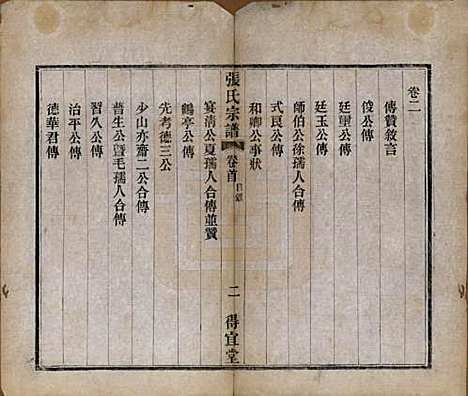 卷二
傳贊敘言
俊公傳
廷尉公傳
廷玉公傳
師伯公徐孺人合傳
式良公傳
和卿公事狀
張氏宗譜 卷首 目錄 二 得宜堂
宴清公夏孺人合傳並贊
鶴亭公傳
先考德三公
少山亦齋二公合傳
普生公暨毛孺人合傳
習久公傳
治平公傳
德華君傳